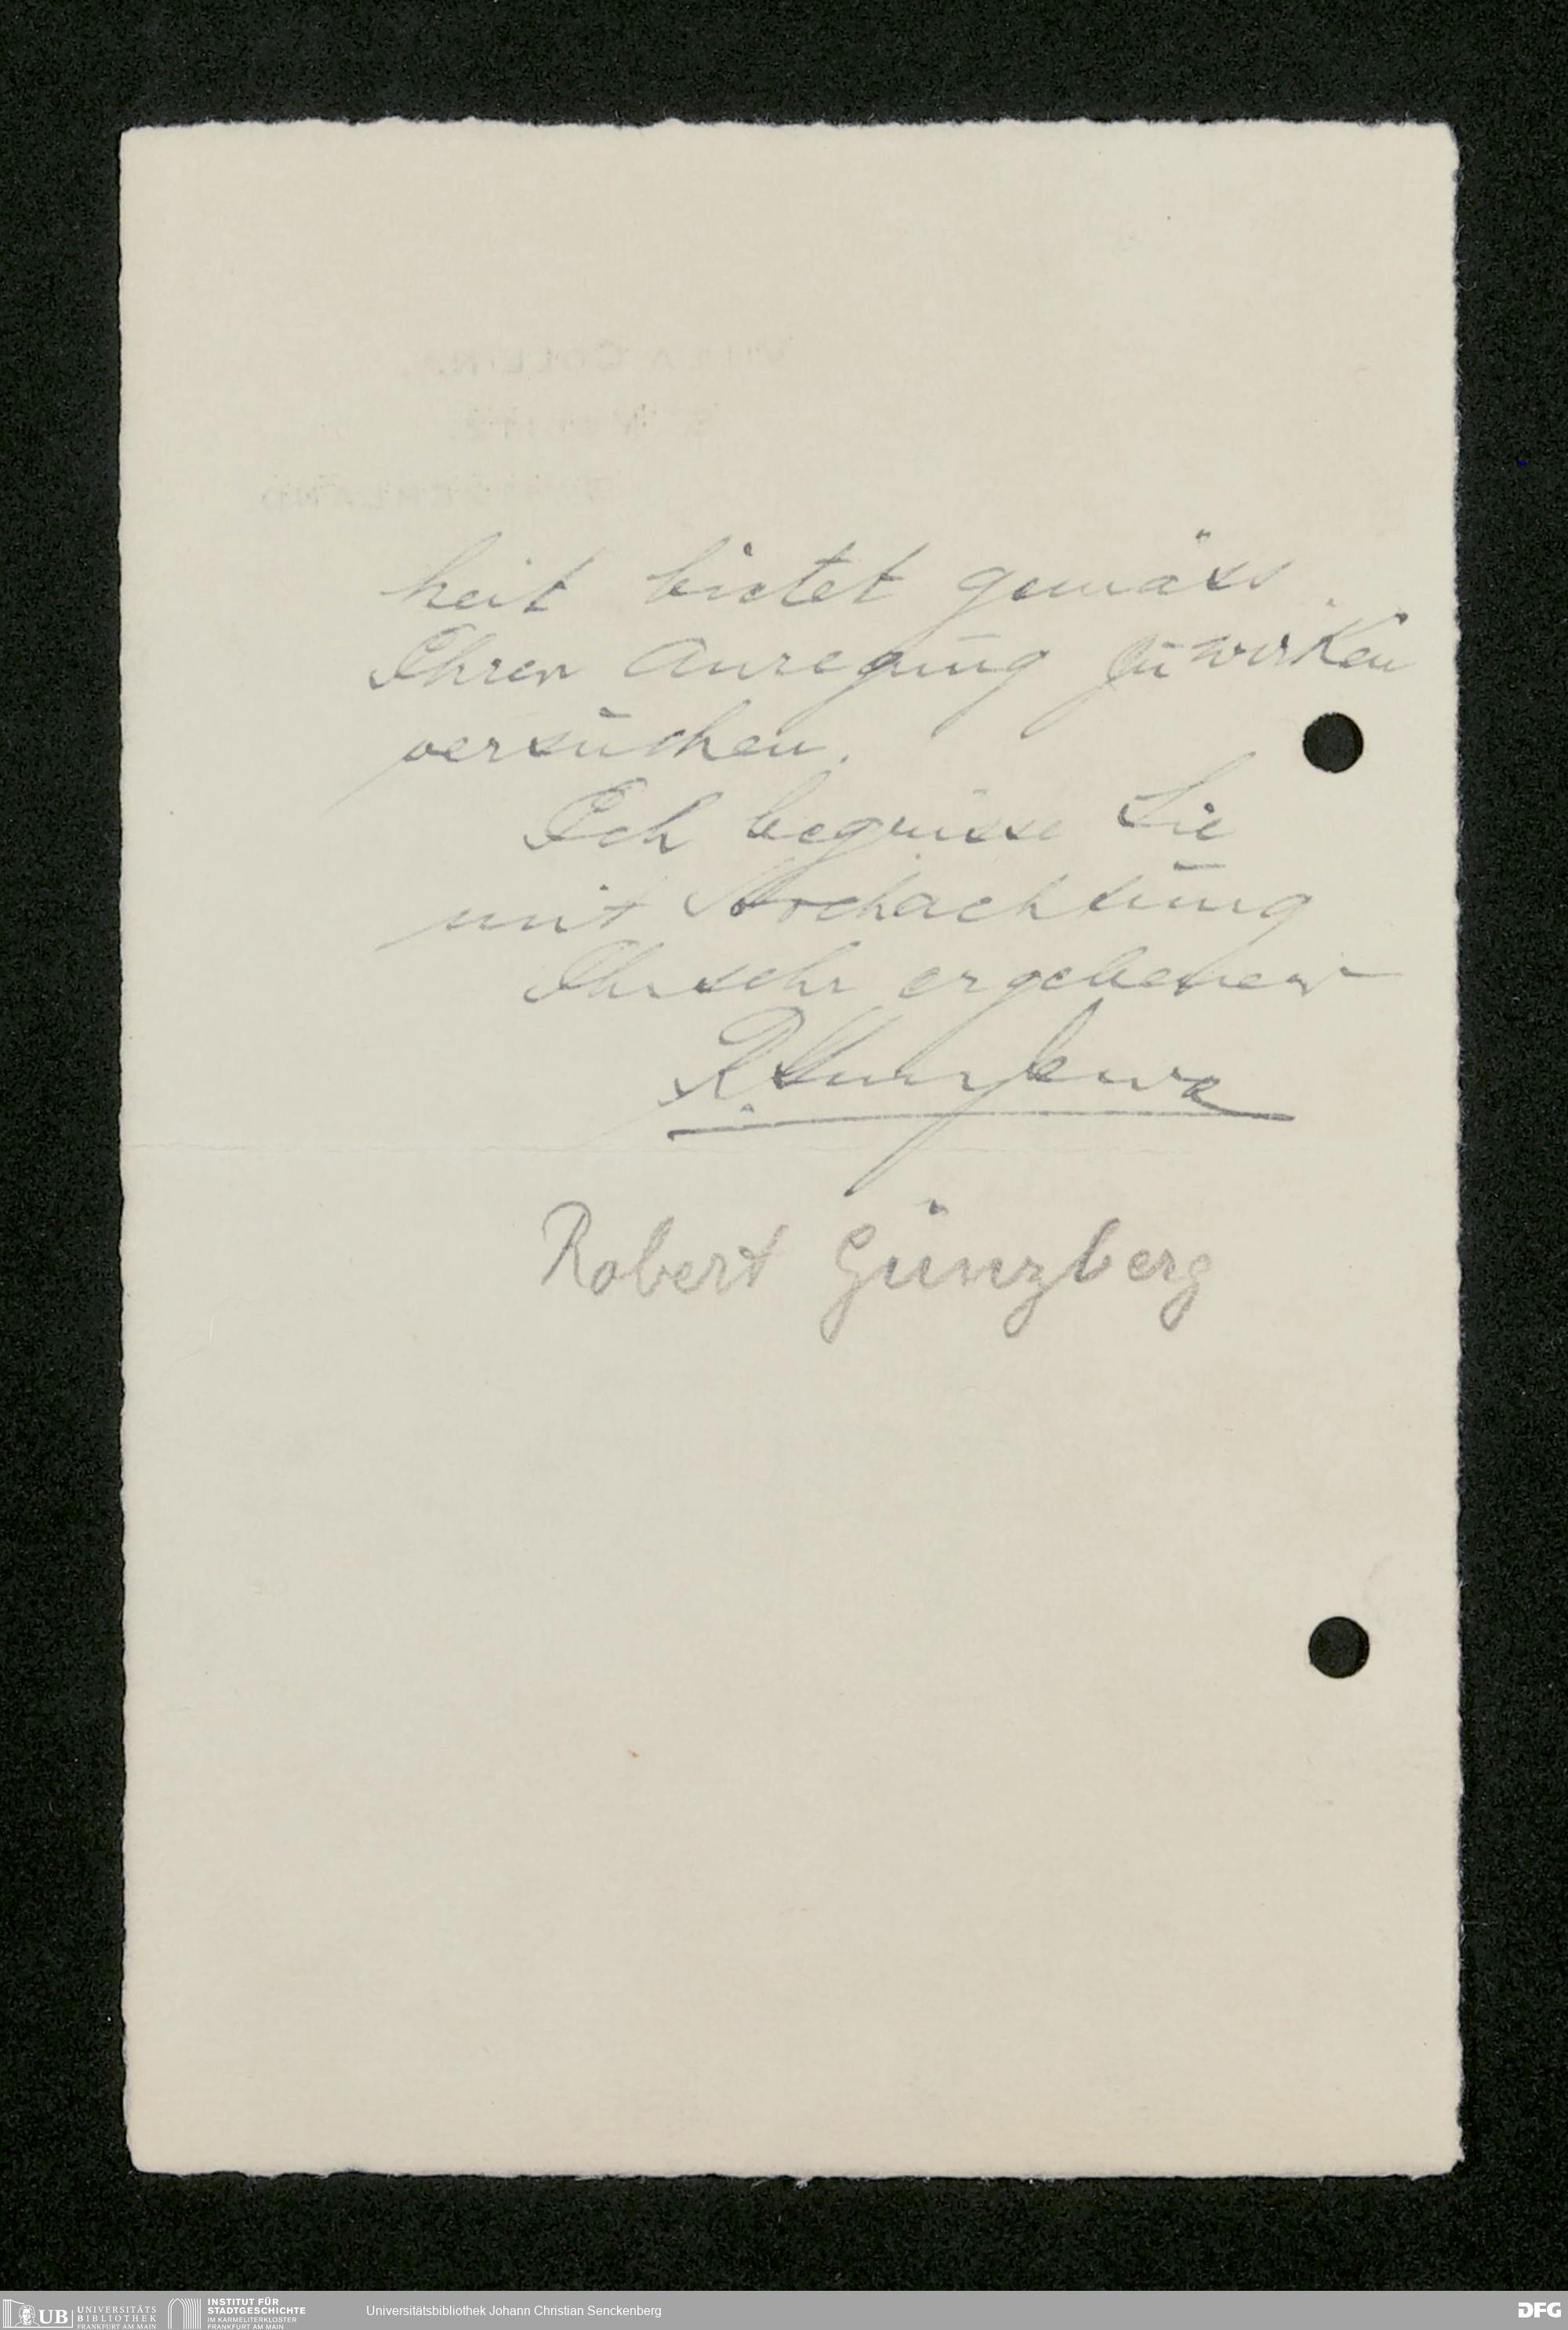 heit bietet gemäss
Ihrer Anregung zu wirken
versuchen.
Ich begrüsse Sie
mit Hochachtung
Ihr sehr ergebener
Robert Günzberg
UB UNIVERSITÄTS
BIBLIOTHEK
FRANKFURT AM MAIN
INSTITUT FÜR
STADTGESCHICHTE
IM KARMELITERKLOSTER
FRANKFURT AM MAIN
Universitätsbibliothek Johann Christian Senckenberg
DFG